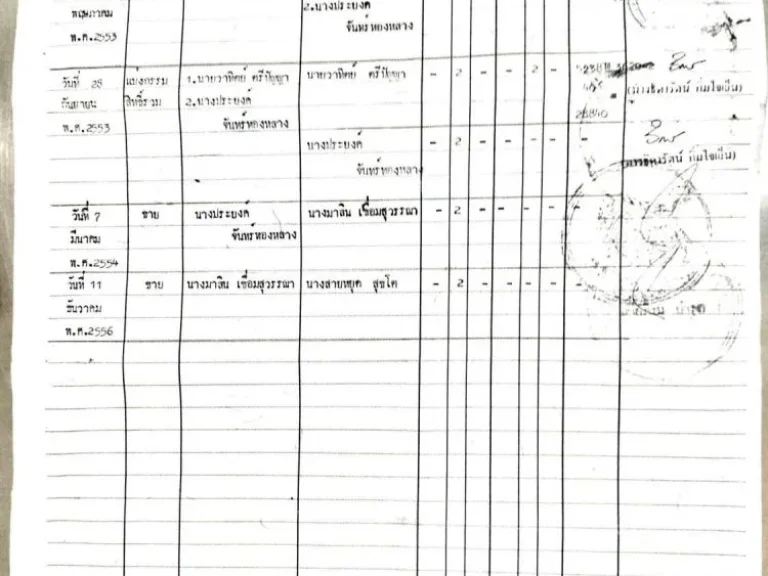 พฤษภาคม
2.นางประยงค์
จันทร์ทองหลาง
พ.ศ.2553
วันที่ 28 แบ่งกรรม 1.นายวาทิตย์ ศรีปัญญา นายวาทิตย์ ศรีปัญญา - 2 - - 2 -
กันยายน สิทธิ์รวม 2.นางประยงค์
พ.ศ.2553 จันทร์ทองหลาง 28840
นางประยงค์ - 2 - - - - -
จันทร์ทองหลาง
วันที่ 7 ขาย นางประยงค์ นางมาลิน เชื่อมสุวรรณา - 2 - - - - -
มีนาคม จันทร์ทองหลาง
พ.ศ.2554
วันที่ 11 ขาย นางมาลิน เชื่อมสุวรรณา นางสายหยุด สุขโค - 2 - - - - -
ธันวาคม
พ.ศ.2556